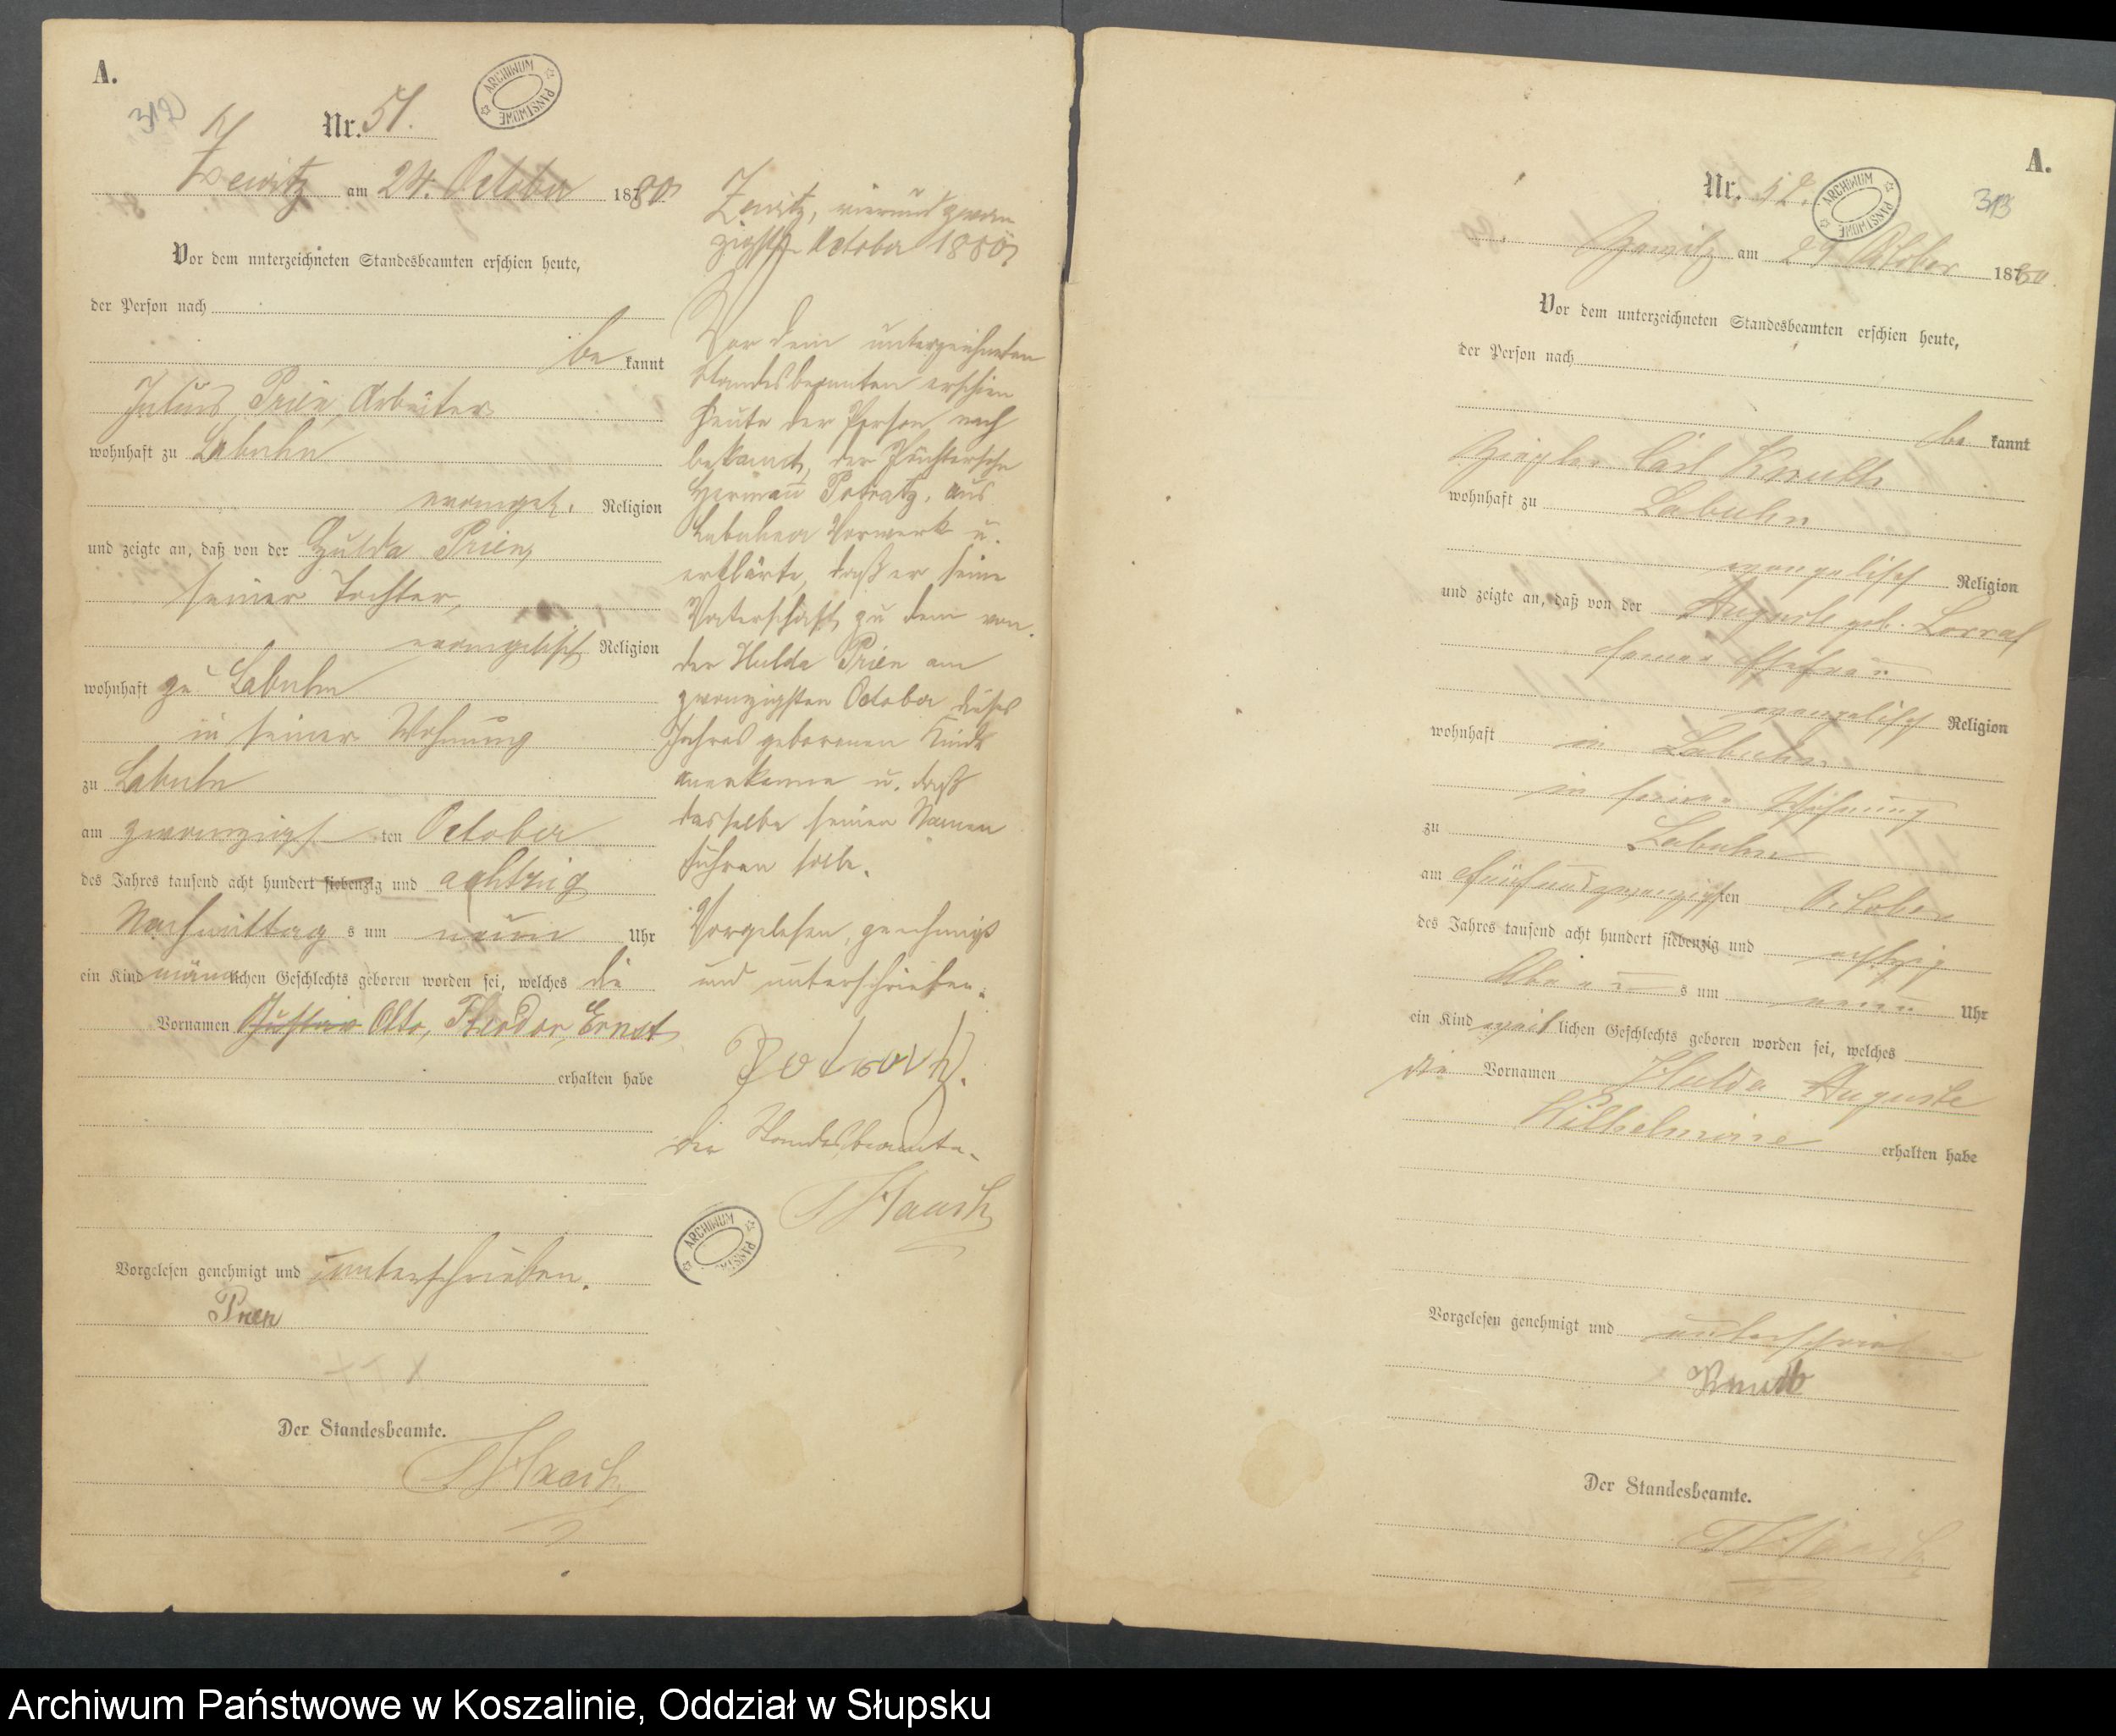 A.
312
Nr. 51.
ARCHIWUM PAŃSTWOWE
Zewitz am 24. October 1880
Vor dem unterzeichneten Standesbeamten erschien heute,
der Person nach
be kannt
Julius Prien, Arbeiter
wohnhaft zu Labuhn
evangel. Religion
und zeigte an, daß von der Hulda Prien,
seiner Tochter,
evangelisch Religion
wohnhaft zu Labuhn
in seiner Wohnung
zu Labuhn
am zwanzigs ten October
des Jahres tausend acht hundert siebenzig und achtzig
Nachmittag s um neun Uhr
ein Kind männlichen Geschlechts geboren worden sei, welches die
Vornamen Gustav Otto, Theodor, Ernst
erhalten habe
Vorgelesen genehmigt und unterschrieben.
Prien
Der Standesbeamte.
Haack
Zewitz, vierundzwan
zigste October 1880
Vor dem unterzeichneten
Standesbeamten erschien
heute der Person nach
bekannt, der Pächtersohn
Hermann Potratz, aus
Labuhner Vorwerk u.
erklärte, daß er seine
Vaterschaft zu dem von
der Hulda Prien am
zwanzigsten October dieses
Jahres geborenen Kinde
anerkenne u. daß
dasselbe seinen Namen
führen solle.
Vorgelesen, genehmigt
und unterschrieben.
Potratz.
Der Standesbeamte.
Haack
ARCHIWUM PAŃSTWOWE
A.
313
Nr. 52.
ARCHIWUM PAŃSTWOWE
Zewitz am 29 October 1880
Vor dem unterzeichneten Standesbeamten erschien heute,
der Person nach
be kannt
Ziegler Carl Knuth
wohnhaft zu Labuhn
evangelisch Religion
und zeigte an, daß von der Auguste geb.
seiner Ehefrau
evangelisch Religion
wohnhaft in Labuhn
in seiner Wohnung
zu Labuhn
am fünfundzwanzigsten October
des Jahres tausend acht hundert siebenzig und achtzig
Abend s um neun Uhr
ein Kind weiblichen Geschlechts geboren worden sei, welches
die Vornamen Hulda Auguste
Wilhelmine erhalten habe
Vorgelesen genehmigt und unterschrieben
Knuth
Der Standesbeamte.
Haack
Archiwum Państwowe w Koszalinie, Oddział w Słupsku